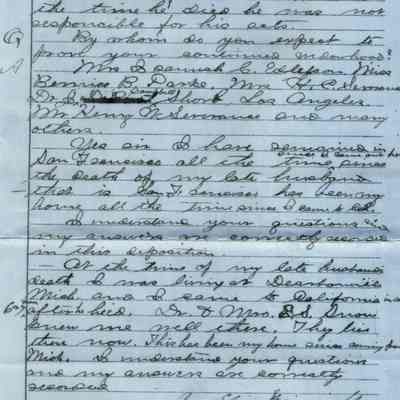 the time he died he was not
responsible for his acts.
Q By whom do you expect to
prove your continued widowhood?
A Mrs Hannah C. Mrs Miss
Bernice E. Mrs H. C. Servance
Dr. Short, Los Angeles
Mr Henry W. Servance and many
others.
Yes sir I have remained in
San Francisco all the time since
the death of my late husband
that is San Francisco has been my
home all the time since I came to Cal.
I understand your questions
my answers are correctly recorded
in this deposition.
At the time of my late husbands
death I was living at Dearborn
Mich. and I came to California in
after he died. Dr. & Mrs. E.S. Snow
knew me well there. They live
there now. This has been my home since coming from
Mich. I understand your questions
and my answers are correctly
recorded